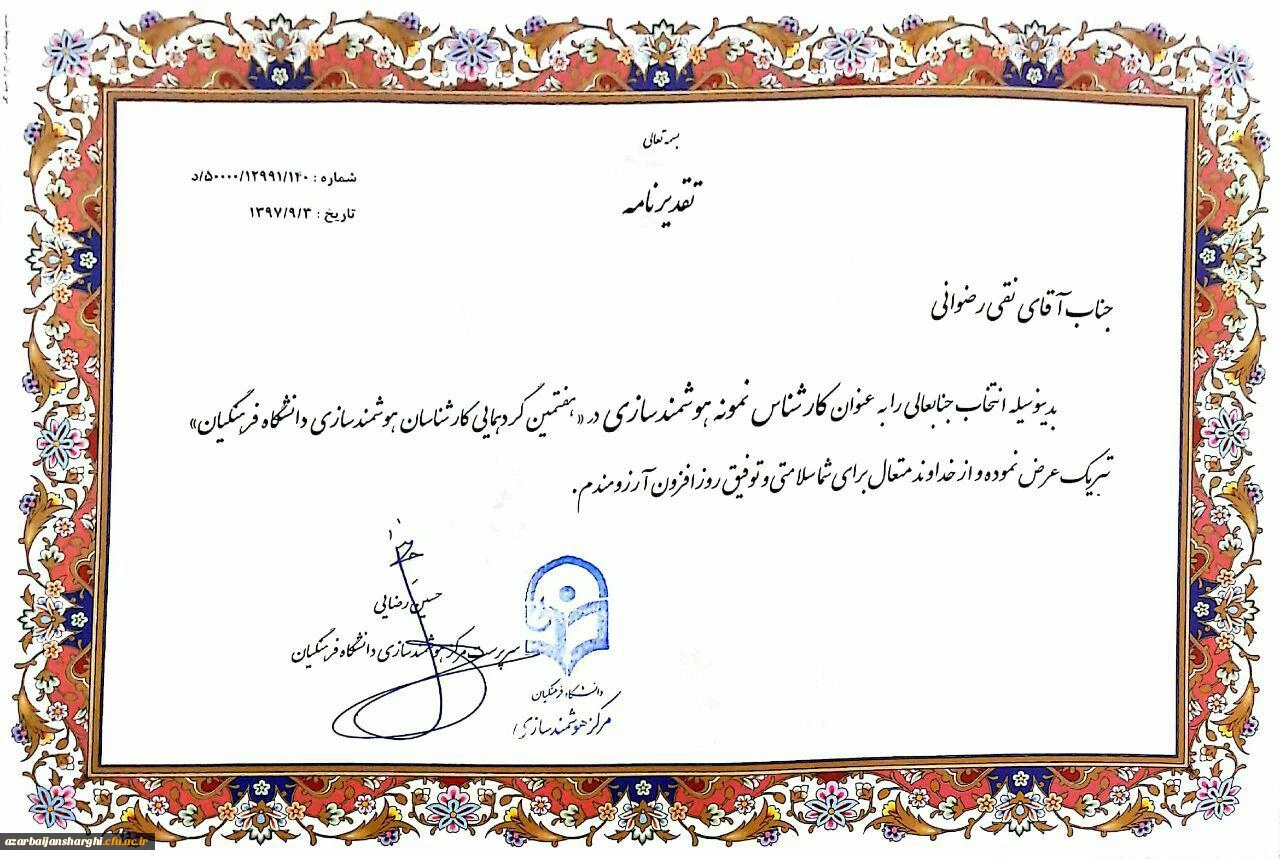 بسمه تعالی
تقدیرنامه
شماره : ۵۰۰۰۰/۱۲۹۹۱/۱۴۰/د
تاریخ : ۱۳۹۷/۹/۳
جناب آقای نقی رضوانی
بدینوسیله انتخاب جنابعالی را به عنوان کارشناس نمونه هوشمندسازی در «هفتمین گردهمایی کارشناسان هوشمندسازی دانشگاه فرهنگیان»
تبریک عرض نموده و از خداوند متعال برای شما سلامتی و توفیق روزافزون آرزومندم.
حسین رضایی
سرپرست مرکز هوشمندسازی دانشگاه فرهنگیان
دانشگاه فرهنگیان
مرکز هوشمندسازی
azarbaijansharghi.cfu.ac.ir